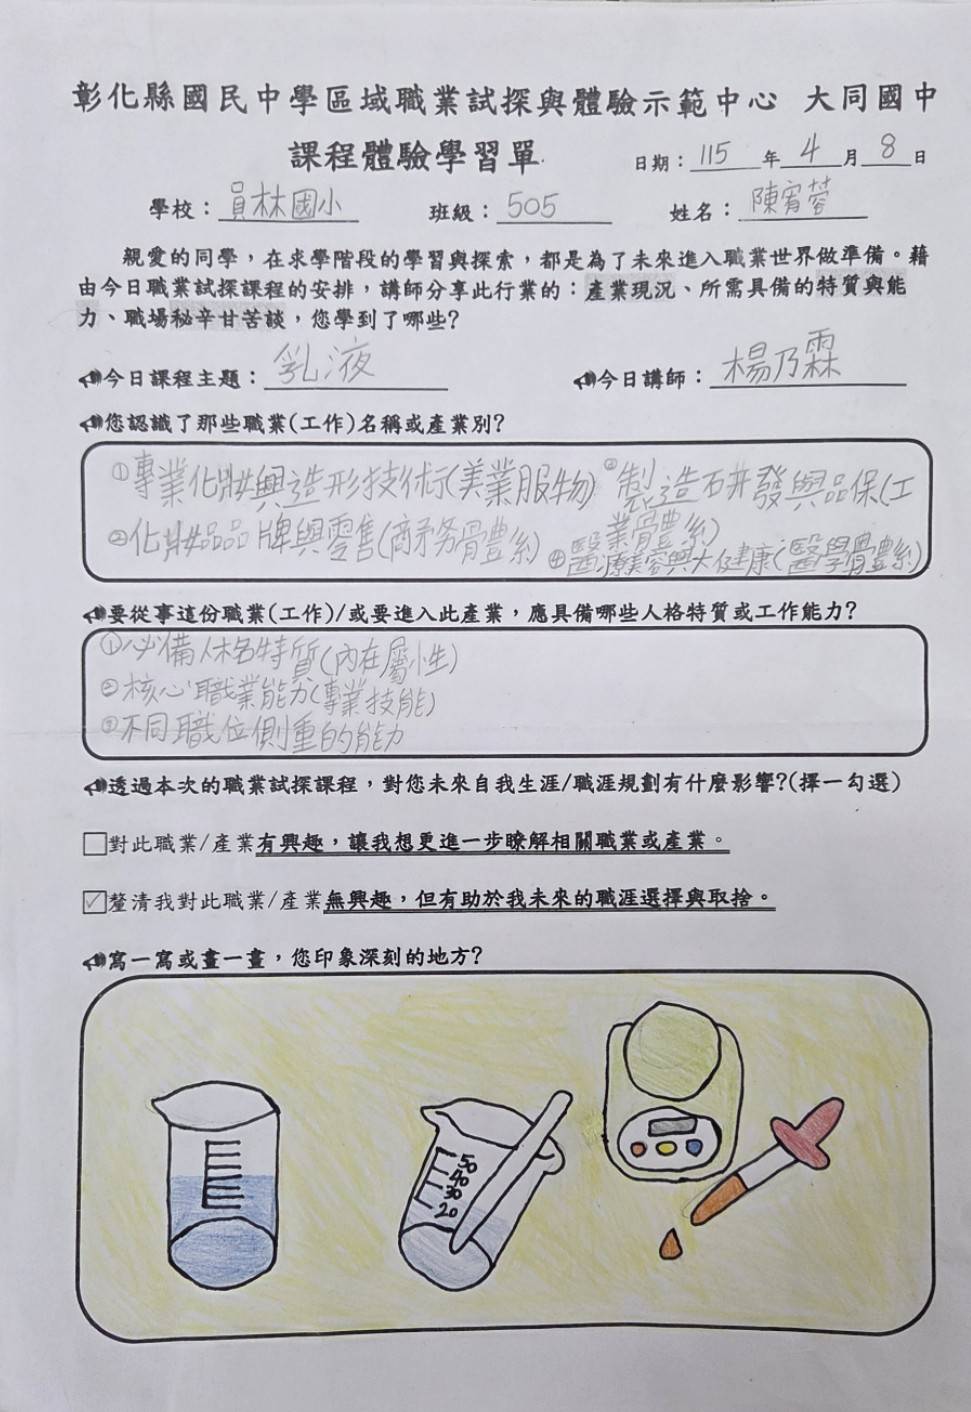 彰化縣國民中學區域職業試探與體驗示範中心 大同國中
課程體驗學習單
日期：115年4月8日
學校：員林國小 班級：505 姓名：陳宥蓉
親愛的同學，在求學階段的學習與探索，都是為了未來進入職業世界做準備。藉
由今日職業試探課程的安排，講師分享此行業的：產業現況、所需具備的特質與能
力、職場秘辛甘苦談，您學到了哪些?
今日課程主題：乳液 今日講師：楊乃霖
您認識了那些職業(工作)名稱或產業別?
①專業化妝與造形技術(美業服物) ②製造研發與品保(工
業體系)
②化妝品品牌與零售(商務體系) ④醫源美容與大健康(醫學體系)
要從事這份職業(工作)/或要進入此產業，應具備哪些人格特質或工作能力?
①必備人格特質(內在屬性)
②核心職業能力(專業技能)
③不同職位側重的能力
透過本次的職業試探課程，對您未來自我生涯/職涯規劃有什麼影響?(擇一勾選)
□對此職業/產業有興趣，讓我想更進一步瞭解相關職業或產業。
☑釐清我對此職業/產業無興趣，但有助於我未來的職涯選擇與取捨。
寫一寫或畫一畫，您印象深刻的地方?
50
40
30
20